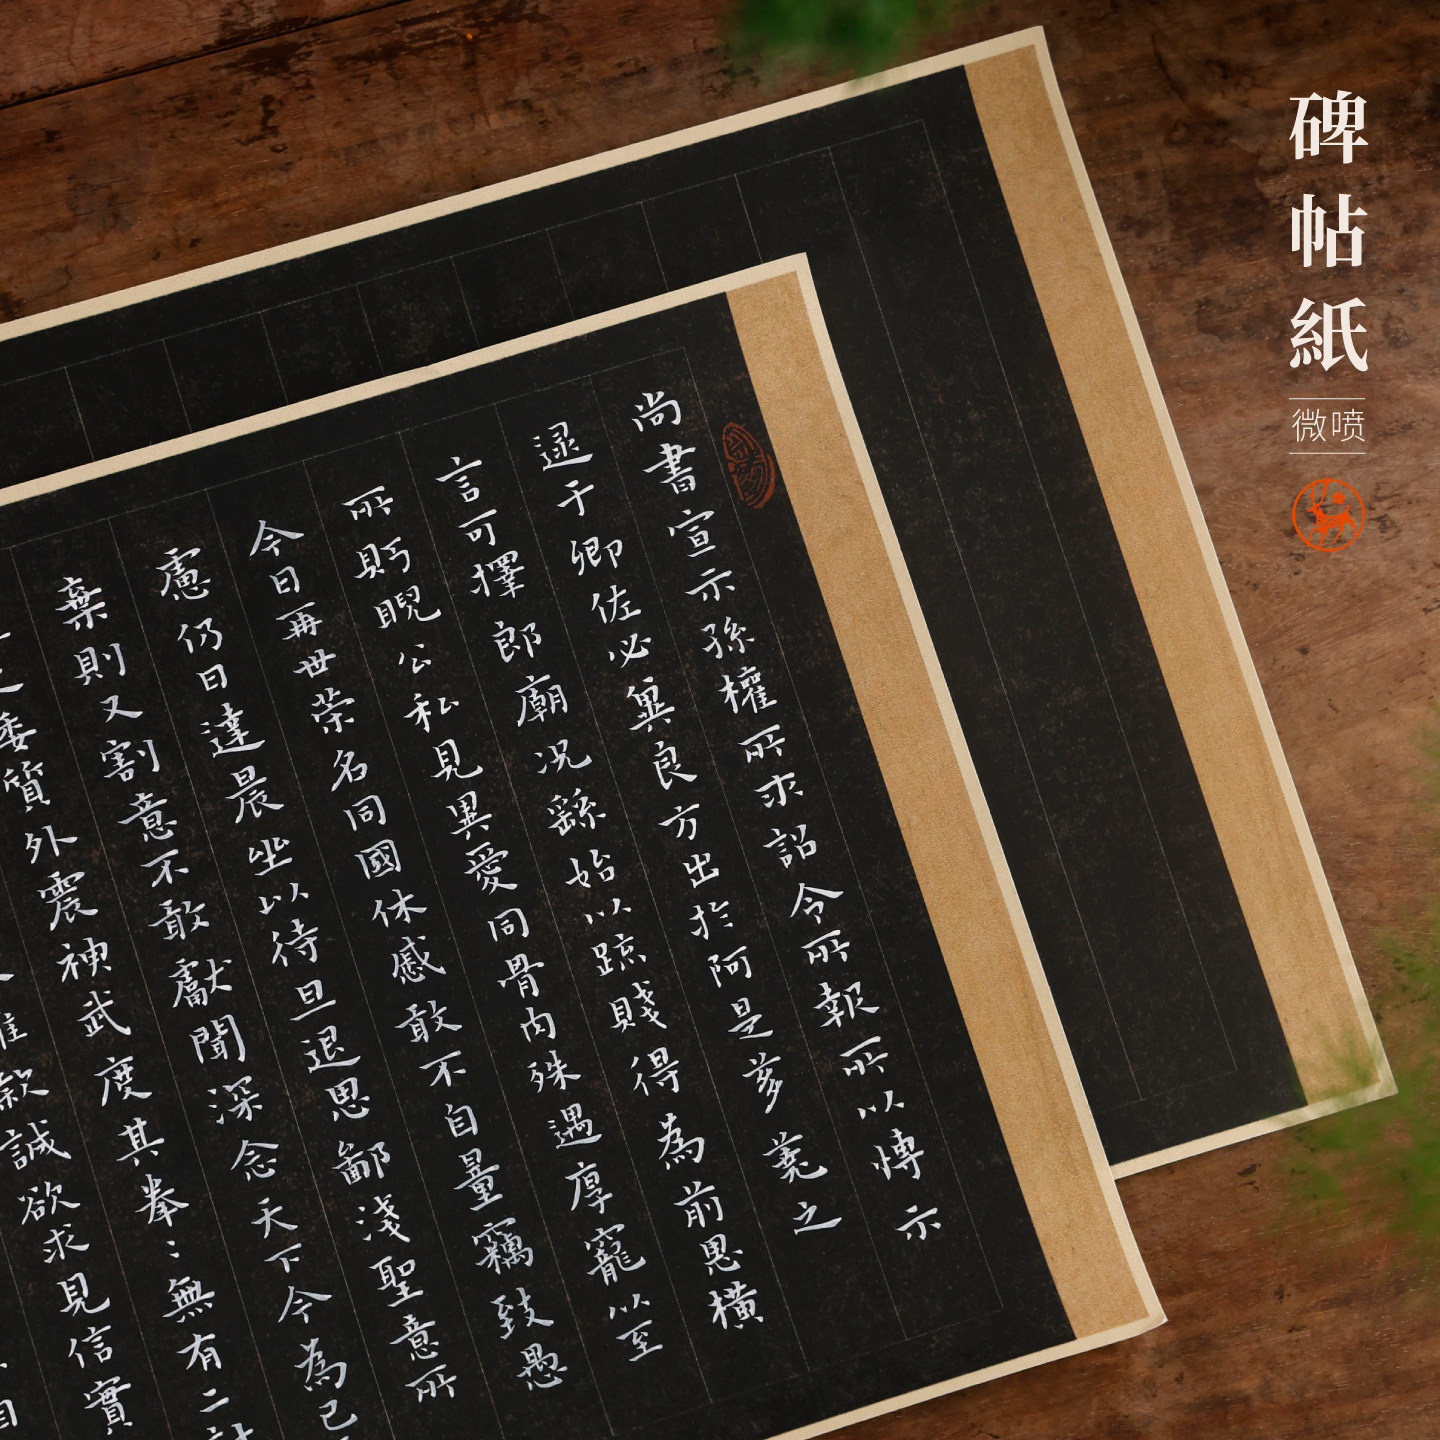 碑帖紙
微喷
尚書宣示孫權所求詔令所報所以博示
逮于卿佐必冀良方出於阿是芻蕘之
言可擇郎廟况繇始以疏賤得為前恩橫
所眄睨公私見異愛同骨肉殊遇厚寵以至
今日再世荣名同國休慼敢不自量竊致愚
慮仍日達晨坐以待旦退思鄙淺聖意所
棄則又割意不敢獻聞深念天下今為已
委質外震神武度其拳:無有二計
款誠欲求見信實